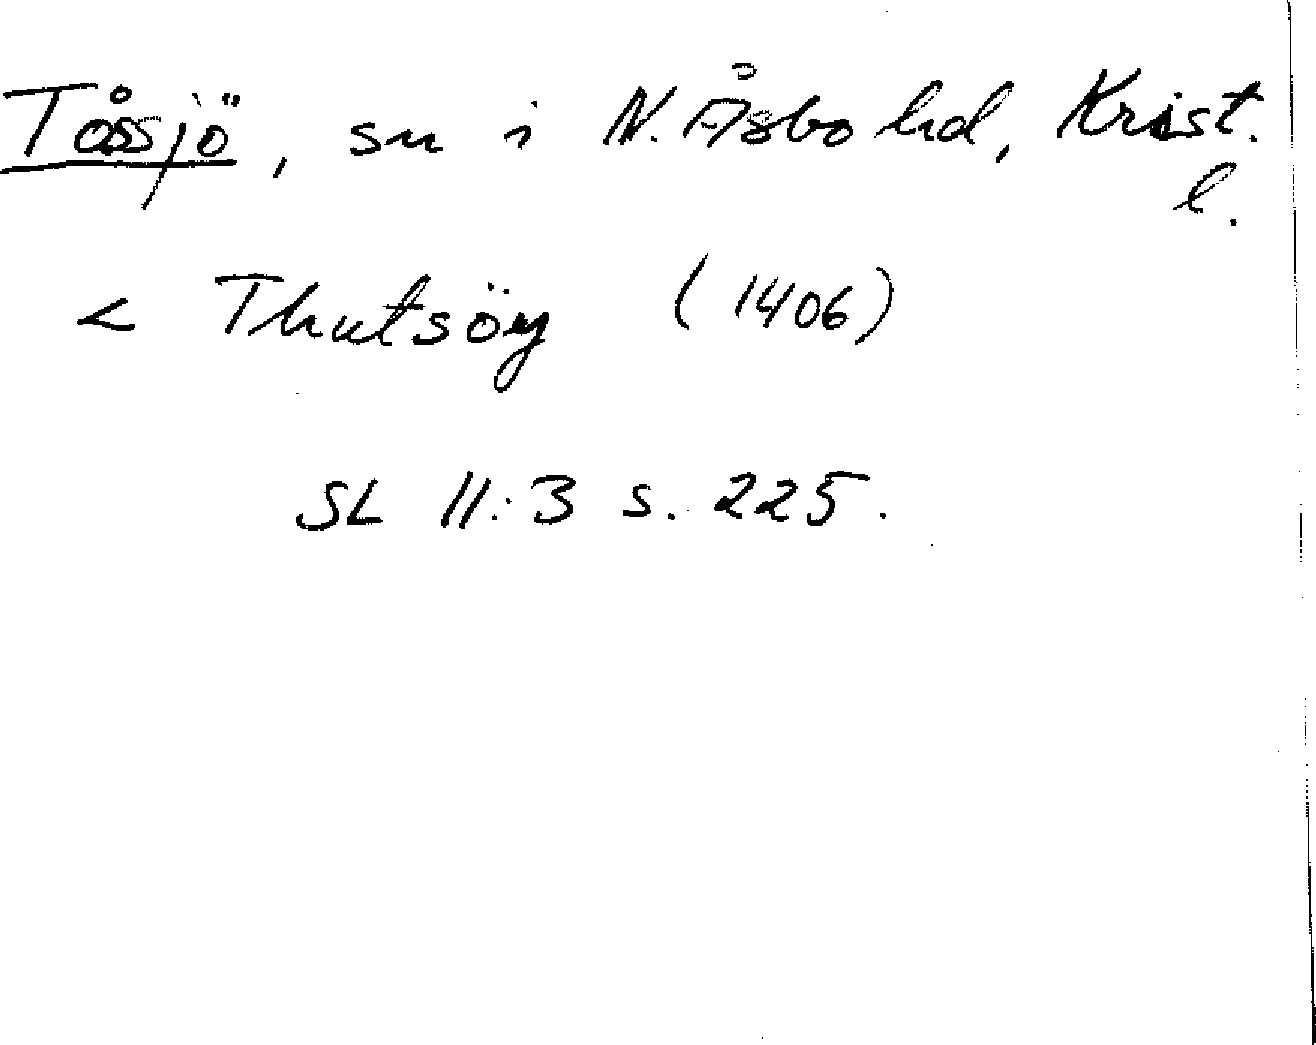 Tåssjö, sn i N. Åsbo hd, Krist.
l.
< Thutsöy (1406)
SL II:3 s. 225.